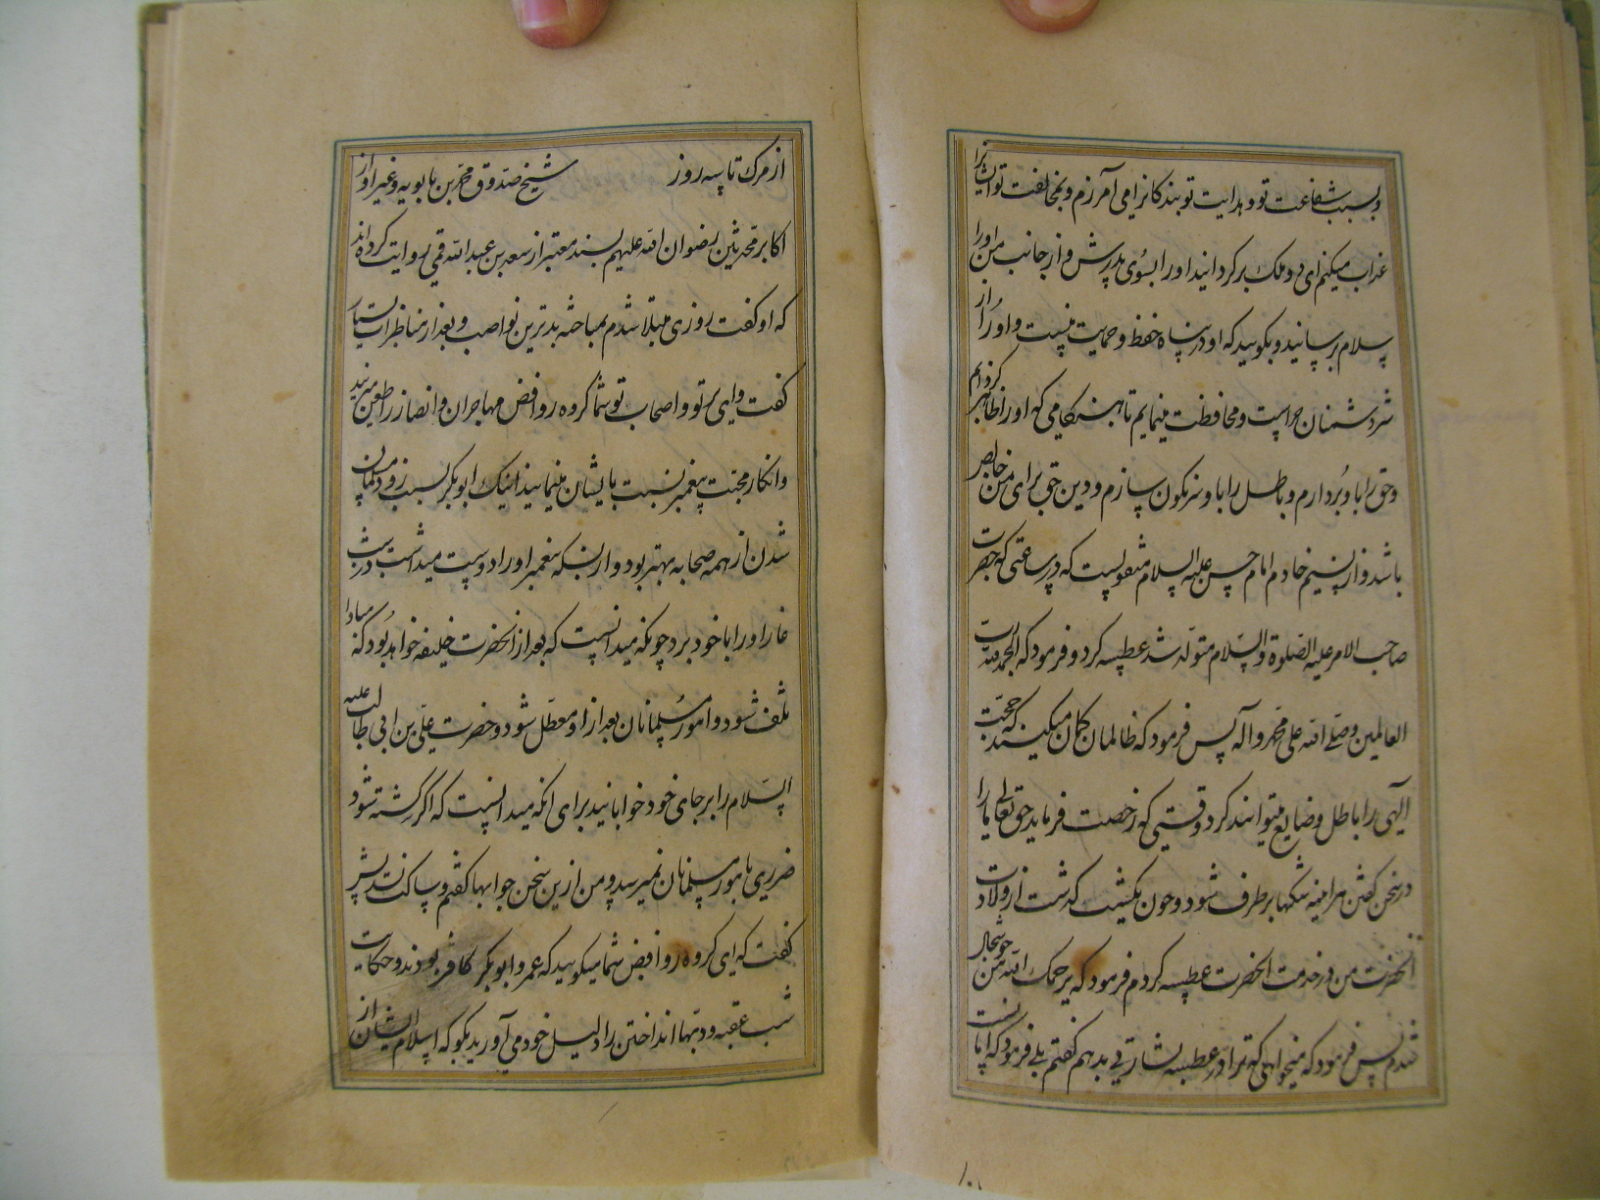 و بسبب شفاعت تو و هدایت تو بندکانرا می آمرزم و بمخالفت تو ایشانرا
عذاب میکنم ای دو ملک برکردانید او را بسوی پدرش و از جانب من او را
سلام برسانید و بکویید که او در پناه حفظ و حمیت منست و او را از
شر دشمنان حراست و محافظت مینمایم تا هنکامی که او را ظاهر کردانم
و حق را باو بردارم و باطل را باو سرنکون سازم و دین حق برای من خالص
باشد و از نسیم خادم امام حسن علیه السلام منقولست که در ساعتی که حضرت
صاحب الامر علیه الصلوة والسلام متولد شد عطسه کرد و فرمود که الحمدلله رب
العالمین وصلی الله علی محمد وآله پس فرمود که ظالمان کمان میکنند که حجت
الهی را باطل و ضایع میتوانند کرد وقتی که رخصت فرماید حق تعالی ما را
در سخن کفتن هرآینه شکها برطرف شود و چون یکشب کذشت از ولادت
آنحضرت من در خدمت آنحضرت عطسه کردم فرمود که یرحمک الله من خوشحال
شدم پس فرمود که میخواهی که ترا در عطسه بشارتی بدهم کفتم بلی فرمود که امانست
از مرک تا سه روز شیخ صدوق محمد بن بابویه و غیر او از
اکابر محدثین رضوان الله علیهم بسند معتبر از سعد بن عبدالله قمی روایت کرده‌اند
که او کفت روزی مبتلا شدم بمباحثه بدترین نواصب و بعد از مناظرات بسیار
کفت وای بر تو و اصحاب تو شما کروه روافض مهاجران و انصار را طعن میزنید
و انکار محبت پیغمبر نسبت بایشان مینمایید اینک ابوبکر بسبب زود مسلمان
شدن از همه صحابه بهتر بود و از بسکه پیغمبر او را دوست میداشت در شب
غار او را با خود برد چونکه میدانست که بعد از آنحضرت خلیفه خواهد بود که مبادا
تلف شود و امور مسلمانان بعد از او معطل شود و حضرت علی بن ابی طالب علیه
السلام را بر جای خود خوابانید برای آنکه میدانست که اکر کشته شود
ضرری بامور مسلمانان نمیرسد و من ازین سخن جوابها کفتم و ساکت نشد پس
کفت که ای کروه روافض شما میکویید که عمر و ابوبکر کافر بودند و حکایت
شب عقبه و دبها انداختن را دلیل خود می آورید بکو که اسلام ایشان از